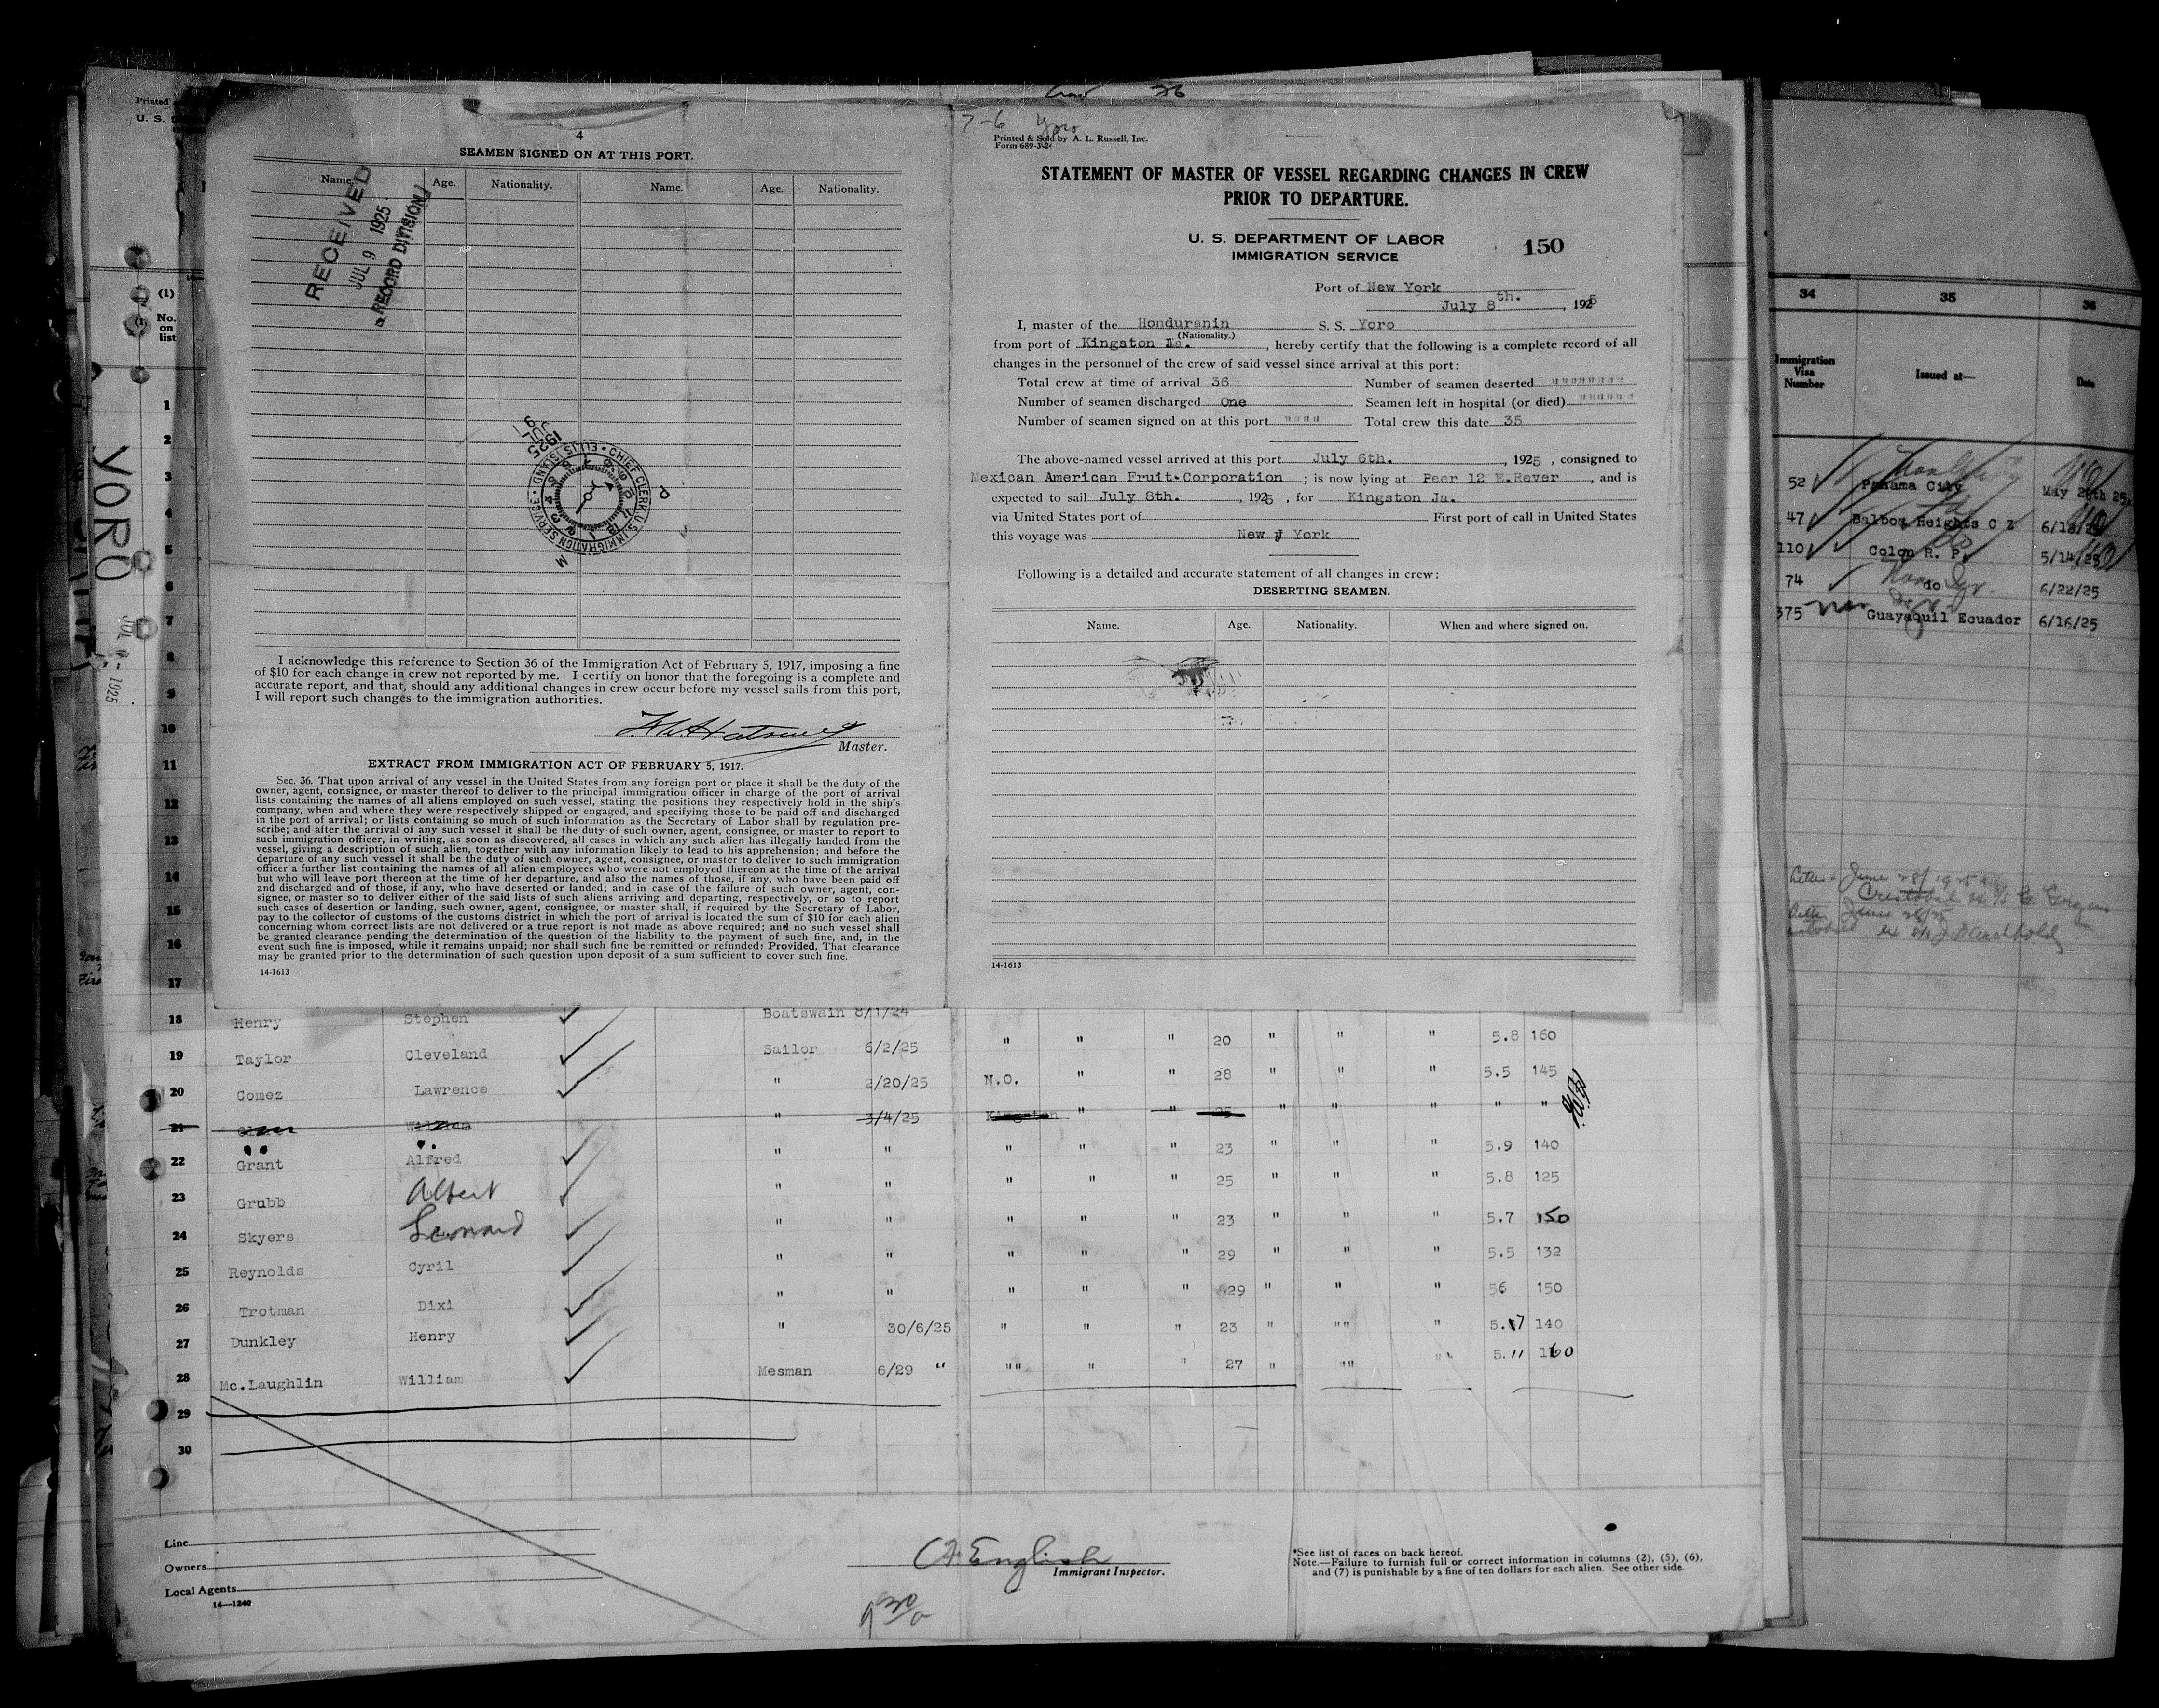 Printed
U. S. D
4
SEAMEN SIGNED ON AT THIS PORT.
Name. Age. Nationality. Name. Age. Nationality.
RECEIVED
JUL 9 1925
RECORD DIVISION
1925
JUL 9
CHIEF CLERK, U.S. IMMIGRATION SERVICE • ELLIS ISLAND •
P
M
I acknowledge this reference to Section 36 of the Immigration Act of February 5, 1917, imposing a fine
of $10 for each change in crew not reported by me. I certify on honor that the foregoing is a complete and
accurate report, and that, should any additional changes in crew occur before my vessel sails from this port,
I will report such changes to the immigration authorities.
Master.
EXTRACT FROM IMMIGRATION ACT OF FEBRUARY 5, 1917.
Sec. 36. That upon arrival of any vessel in the United States from any foreign port or place it shall be the duty of the
owner, agent, consignee, or master thereof to deliver to the principal immigration officer in charge of the port of arrival
lists containing the names of all aliens employed on such vessel, stating the positions they respectively hold in the ship's
company, when and where they were respectively shipped or engaged, and specifying those to be paid off and discharged
in the port of arrival; or lists containing so much of such information as the Secretary of Labor shall by regulation pre-
scribe; and after the arrival of any such vessel it shall be the duty of such owner, agent, consignee, or master to report to
such immigration officer, in writing, as soon as discovered, all cases in which any such alien has illegally landed from the
vessel, giving a description of such alien, together with any information likely to lead to his apprehension; and before the
departure of any such vessel it shall be the duty of such owner, agent, consignee, or master to deliver to such immigration
officer a further list containing the names of all alien employees who were not employed thereon at the time of the arrival
but who will leave port thereon at the time of her departure, and also the names of those, if any, who have been paid off
and discharged and of those, if any, who have deserted or landed; and in case of the failure of such owner, agent, con-
signee, or master so to deliver either of the said lists of such aliens arriving and departing, respectively, or so to report
such cases of desertion or landing, such owner, agent, consignee, or master shall, if required by the Secretary of Labor,
pay to the collector of customs of the customs district in which the port of arrival is located the sum of $10 for each alien
concerning whom correct lists are not delivered or a true report is not made as above required; and no such vessel shall
be granted clearance pending the determination of the question of the liability to the payment of such fine, and, in the
event such fine is imposed, while it remains unpaid; nor shall such fine be remitted or refunded: Provided, That clearance
may be granted prior to the determination of such question upon deposit of a sum sufficient to cover such fine.
14-1613
26
7-6 Yoro
Printed & Sold by A. L. Russell, Inc.
Form 689-3-24
STATEMENT OF MASTER OF VESSEL REGARDING CHANGES IN CREW
PRIOR TO DEPARTURE.
U. S. DEPARTMENT OF LABOR
IMMIGRATION SERVICE
150
Port of New York
July 8th. , 1925
I, master of the Honduranin S. S. Yoro
(Nationality.)
from port of Kingston Ja. , hereby certify that the following is a complete record of all
changes in the personnel of the crew of said vessel since arrival at this port:
Total crew at time of arrival 36 Number of seamen deserted """"""""
Number of seamen discharged One Seamen left in hospital (or died) """"""
Number of seamen signed on at this port """" Total crew this date 35
The above-named vessel arrived at this port July 6th. , 1925 , consigned to
Mexican American Fruit.Corporation ; is now lying at Peer 12 E.Rever , and is
expected to sail July 8th. , 1925 , for Kingston Ja.
via United States port of First port of call in United States
this voyage was New York
Following is a detailed and accurate statement of all changes in crew:
DESERTING SEAMEN.
Name. Age. Nationality. When and where signed on.
14-1613
(1)
No.
on
list
YORO
1925
1
2
3
4
5
6
7
8
9
10
11
12
13
14
15
16
17
18 Henry Stephen Boatswain 8/1/24
19 Taylor Cleveland Sailor 6/2/25 " " " 20 " " " 5.8 160
20 Comez Lawrence " 2/20/25 N.O. " " 28 " " " 5.5 145
21 William " 3/4/25 Kingston " " 25 " " " " "
22 Grant Alfred " " " " " 23 " " " 5.9 140
23 Grubb Albert " " " " 25 " " " 5.8 125
24 Skyers Leonard " " " " " 23 " " " 5.7 150
25 Reynolds Cyril " " " " " 29 " " " 5.5 132
26 Trotman Dixi " " " " " 29 " " " 56 150
27 Dunkley Henry " 30/6/25 " " " 23 " "" " 5.7 140
28 Mc.Laughlin William Mesman 6/29 " "" " " 27 " "" "" 5.11 160
29
30
Line
Owners
Local Agents
14—1240
English
Immigrant Inspector.
9 30/a
*See list of races on back hereof.
Note.—Failure to furnish full or correct information in columns (2), (5), (6),
and (7) is punishable by a fine of ten dollars for each alien. See other side.
34 35 36
Immigration
Visa
Number
Issued at—
Date
52 Panama City May 28th 25.
47 Balboa Heights C Z 6/18/25
110 Colon R. P. 5/14/25
74 do 6/22/25
375 Guayaquil Ecuador 6/16/25
June 28/1925
Cristobal ex
June 28/25
ex J D Archbold